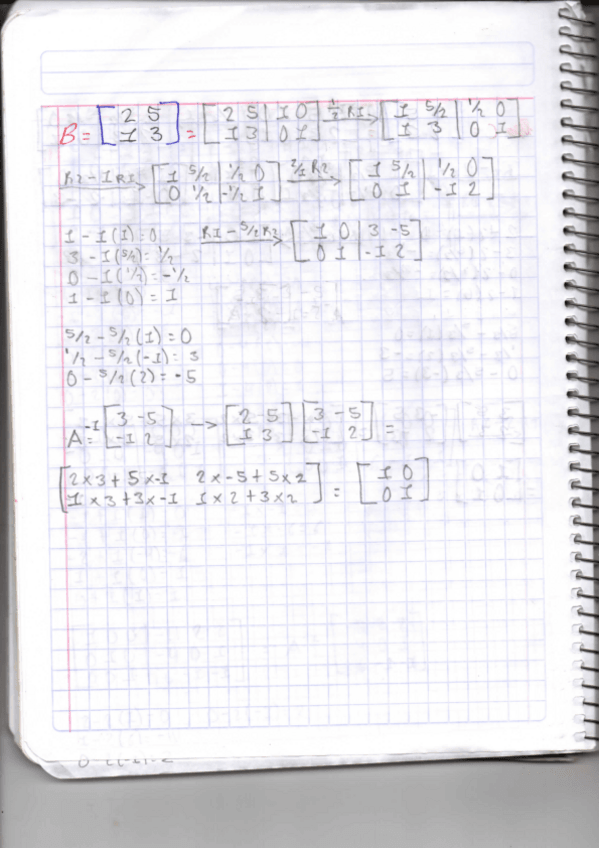 B = [2 5; 1 3] = [2 5 | 1 0; 1 3 | 0 1] 1/2 R1→ [1 5/2 | 1/2 0; 1 3 | 0 1]
R2-1R1→ [1 5/2 | 1/2 0; 0 1/2 | -1/2 1] 2/1 R2→ [1 5/2 | 1/2 0; 0 1 | -1 2]
1-1(1)=0 R1-5/2R2→ [1 0 | 3 -5; 0 1 | -1 2]
3-1(5/2)=1/2
0-1(1/2)=-1/2
1-1(0)=1
5/2-5/2(1)=0
1/2-5/2(-1)=3
0-5/2(2)=-5
A-1= [3 -5; -1 2] → [2 5; 1 3] [3 -5; -1 2] =
[2x3+5x-1 2x-5+5x2; 1x3+3x-1 1x2+3x2] = [1 0; 0 1]